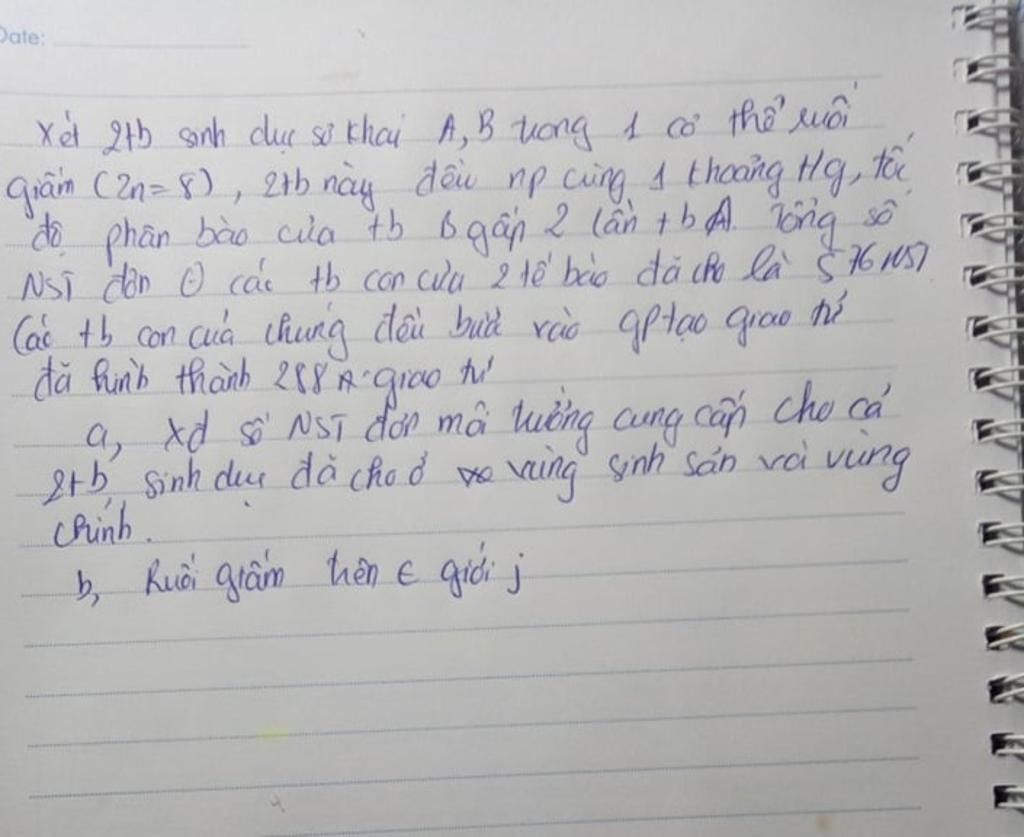 Date:
Xét 2tb sinh dục sơ khai A, B trong 1 cơ thể ruồi
giấm (2n = 8), 2tb này đều np cùng 1 khoảng tg, tốc
độ phân bào của tb B gấp 2 lần tb A. Tổng số
NST đơn các tb con của 2 tế bào đã cho là 576 NST
Các tb con của chúng đều bước vào gp tạo giao tử
đã hình thành 288 giao tử
a, xđ số NST đơn môi trường cung cấp cho cả
2tb sinh dục đã cho ở vùng sinh sản và vùng
chính.
b, Ruồi giấm trên ∈ giới j